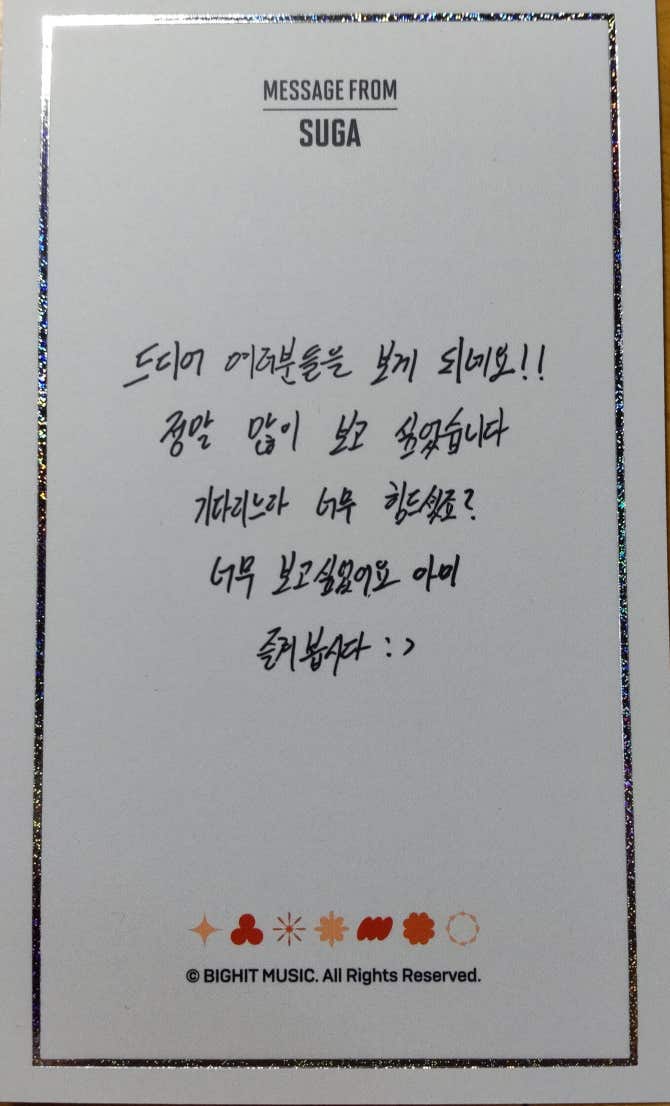 MESSAGE FROM
SUGA
드디어 여러분들을 보게 되네요!!
정말 많이 보고 싶었습니다
기다리느라 너무 힘드셨죠?
너무 보고싶었어요 아미
즐겨봅시다 :>
© BIGHIT MUSIC. All Rights Reserved.